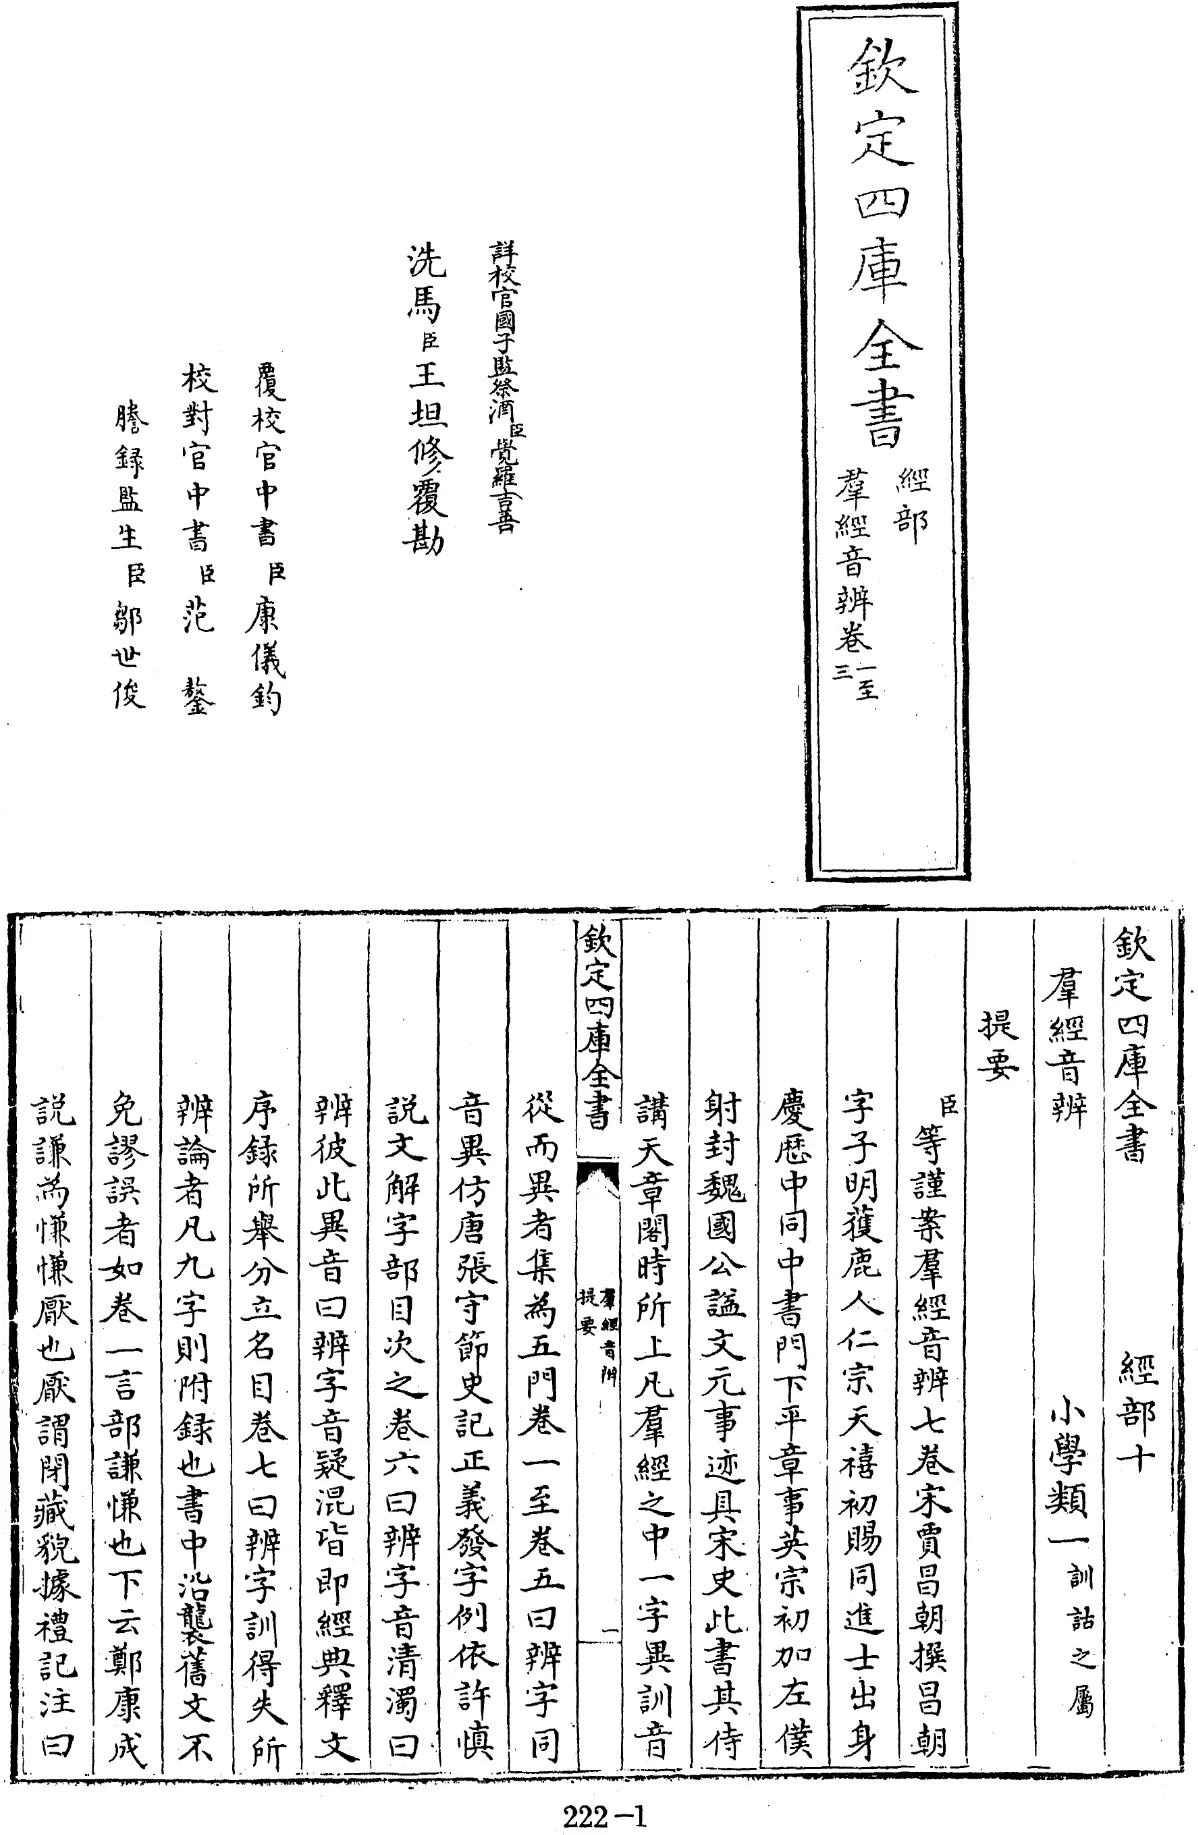 欽定四庫全書
經部
羣經音辨卷一至三
詳校官國子監祭酒臣覺羅吉善
洗馬臣王坦修覆勘
覆校官中書臣康儀鈞
校對官中書臣范鏊
謄錄監生臣鄒世俊
欽定四庫全書 經部十
羣經音辨 小學類一訓詁之屬
提要
臣等謹案羣經音辨七卷宋賈昌朝撰昌朝
字子明獲鹿人仁宗天禧初賜同進士出身
慶歷中同中書門下平章事英宗初加左僕
射封魏國公謚文元事迹具宋史此書其侍
講天章閣時所上凡羣經之中一字異訓音
欽定四庫全書
羣經音辨
提要
一
從而異者集為五門卷一至卷五曰辨字同
音異仿唐張守節史記正義發字例依許慎
說文解字部目次之卷六曰辨字音清濁曰
辨彼此異音曰辨字音疑混皆即經典釋文
序録所舉分立名目卷七曰辨字訓得失所
辨論者凡九字則附録也書中沿襲舊文不
免謬誤者如卷一言部謙慊也下云鄭康成
說謙為慊慊厭也厭謂閉藏貌據禮記注曰
222-1